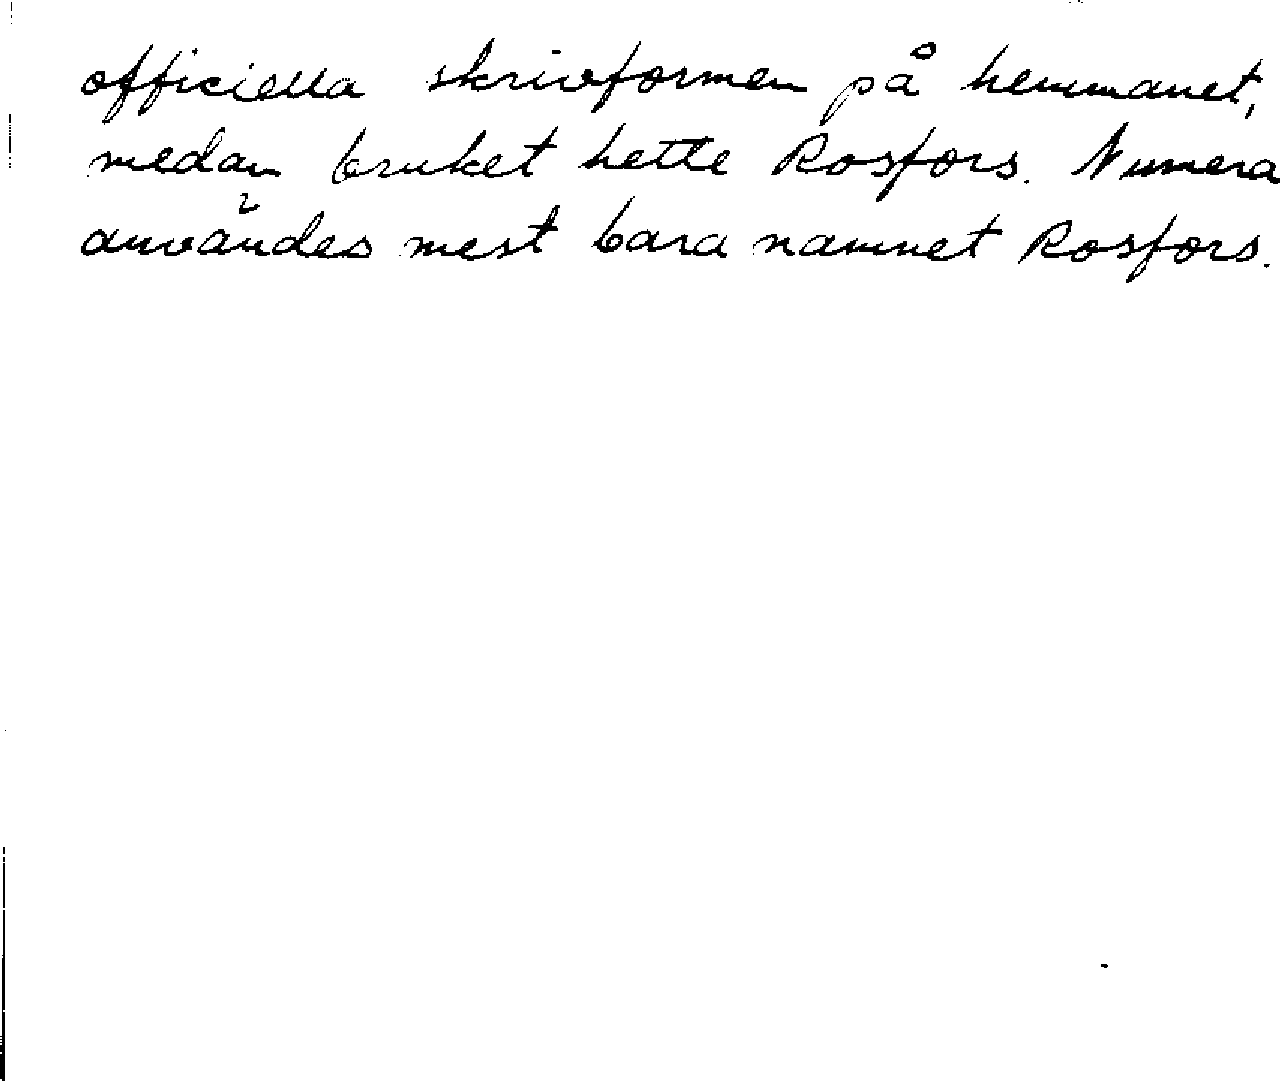 officiella skrivformen på hemmanet,
medan bruket hette Rosfors. Numera
användes mest bara namnet Rosfors.